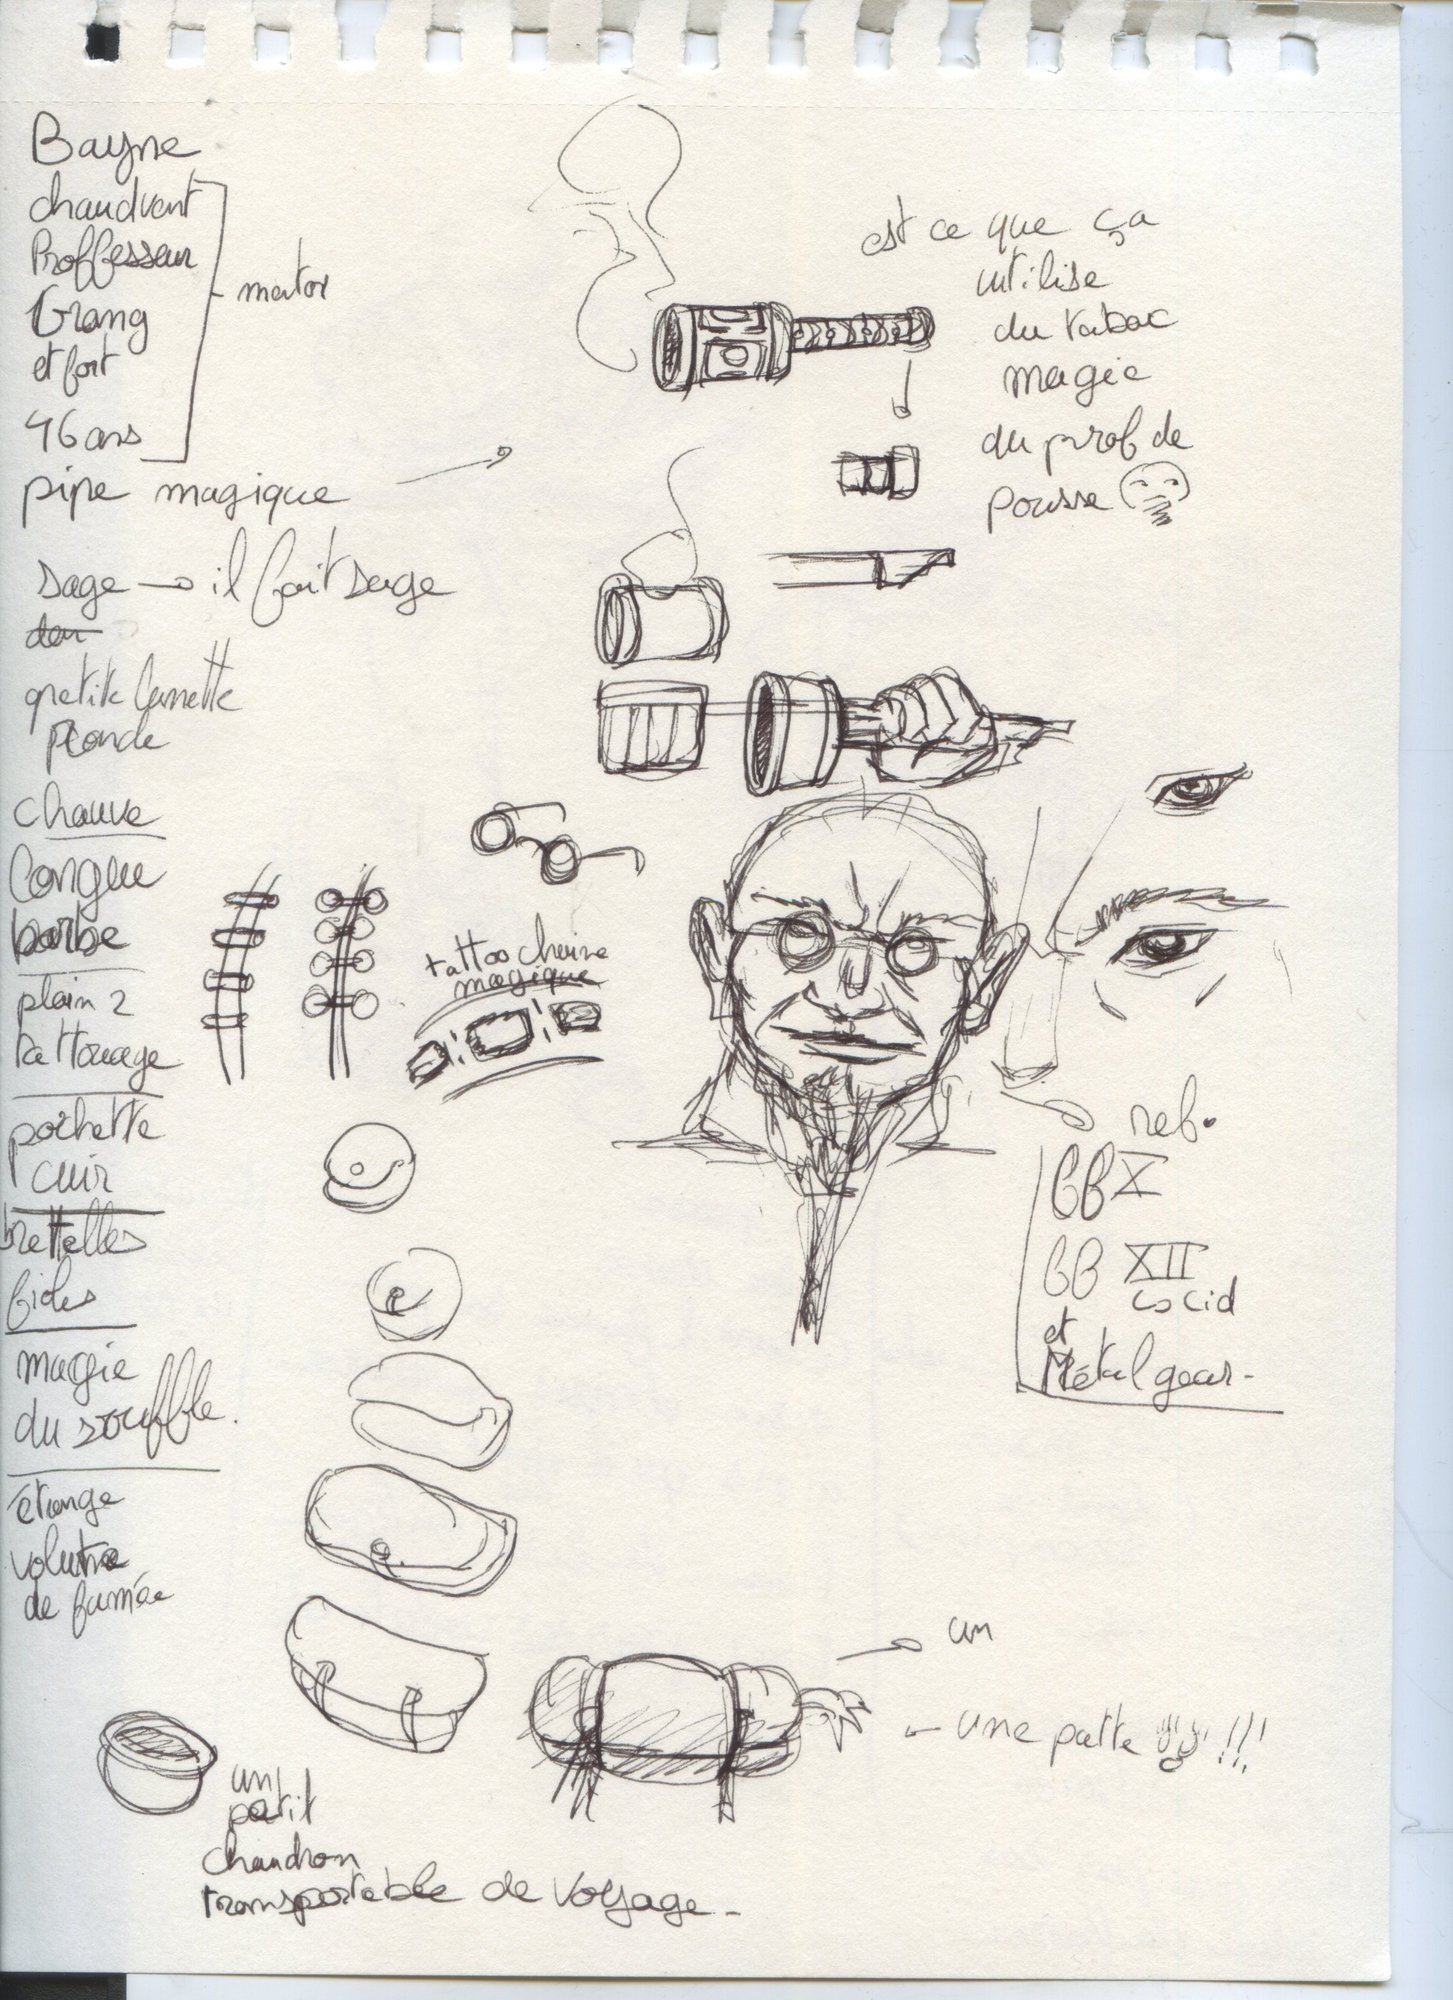 Bayne
chaudvent
Proffesseur
Grang
et fort
46 ans
mator
pipe magique
sage → il fait serge
petite lunette
ronde
chauve
longue
barbe
plain 2
tattouage
pochette
cuir
brettelles
fioles
magie
du souffle.
étrange
volutre
de fumée
est ce que ça
utilise
du tabac
magie
du prof de
pousse
tattoo chaine
magique
ref.
FFX
FF XII
et
Métal gear-
un
une patte !!!
un
petit
chaudron
transportable de voyage-